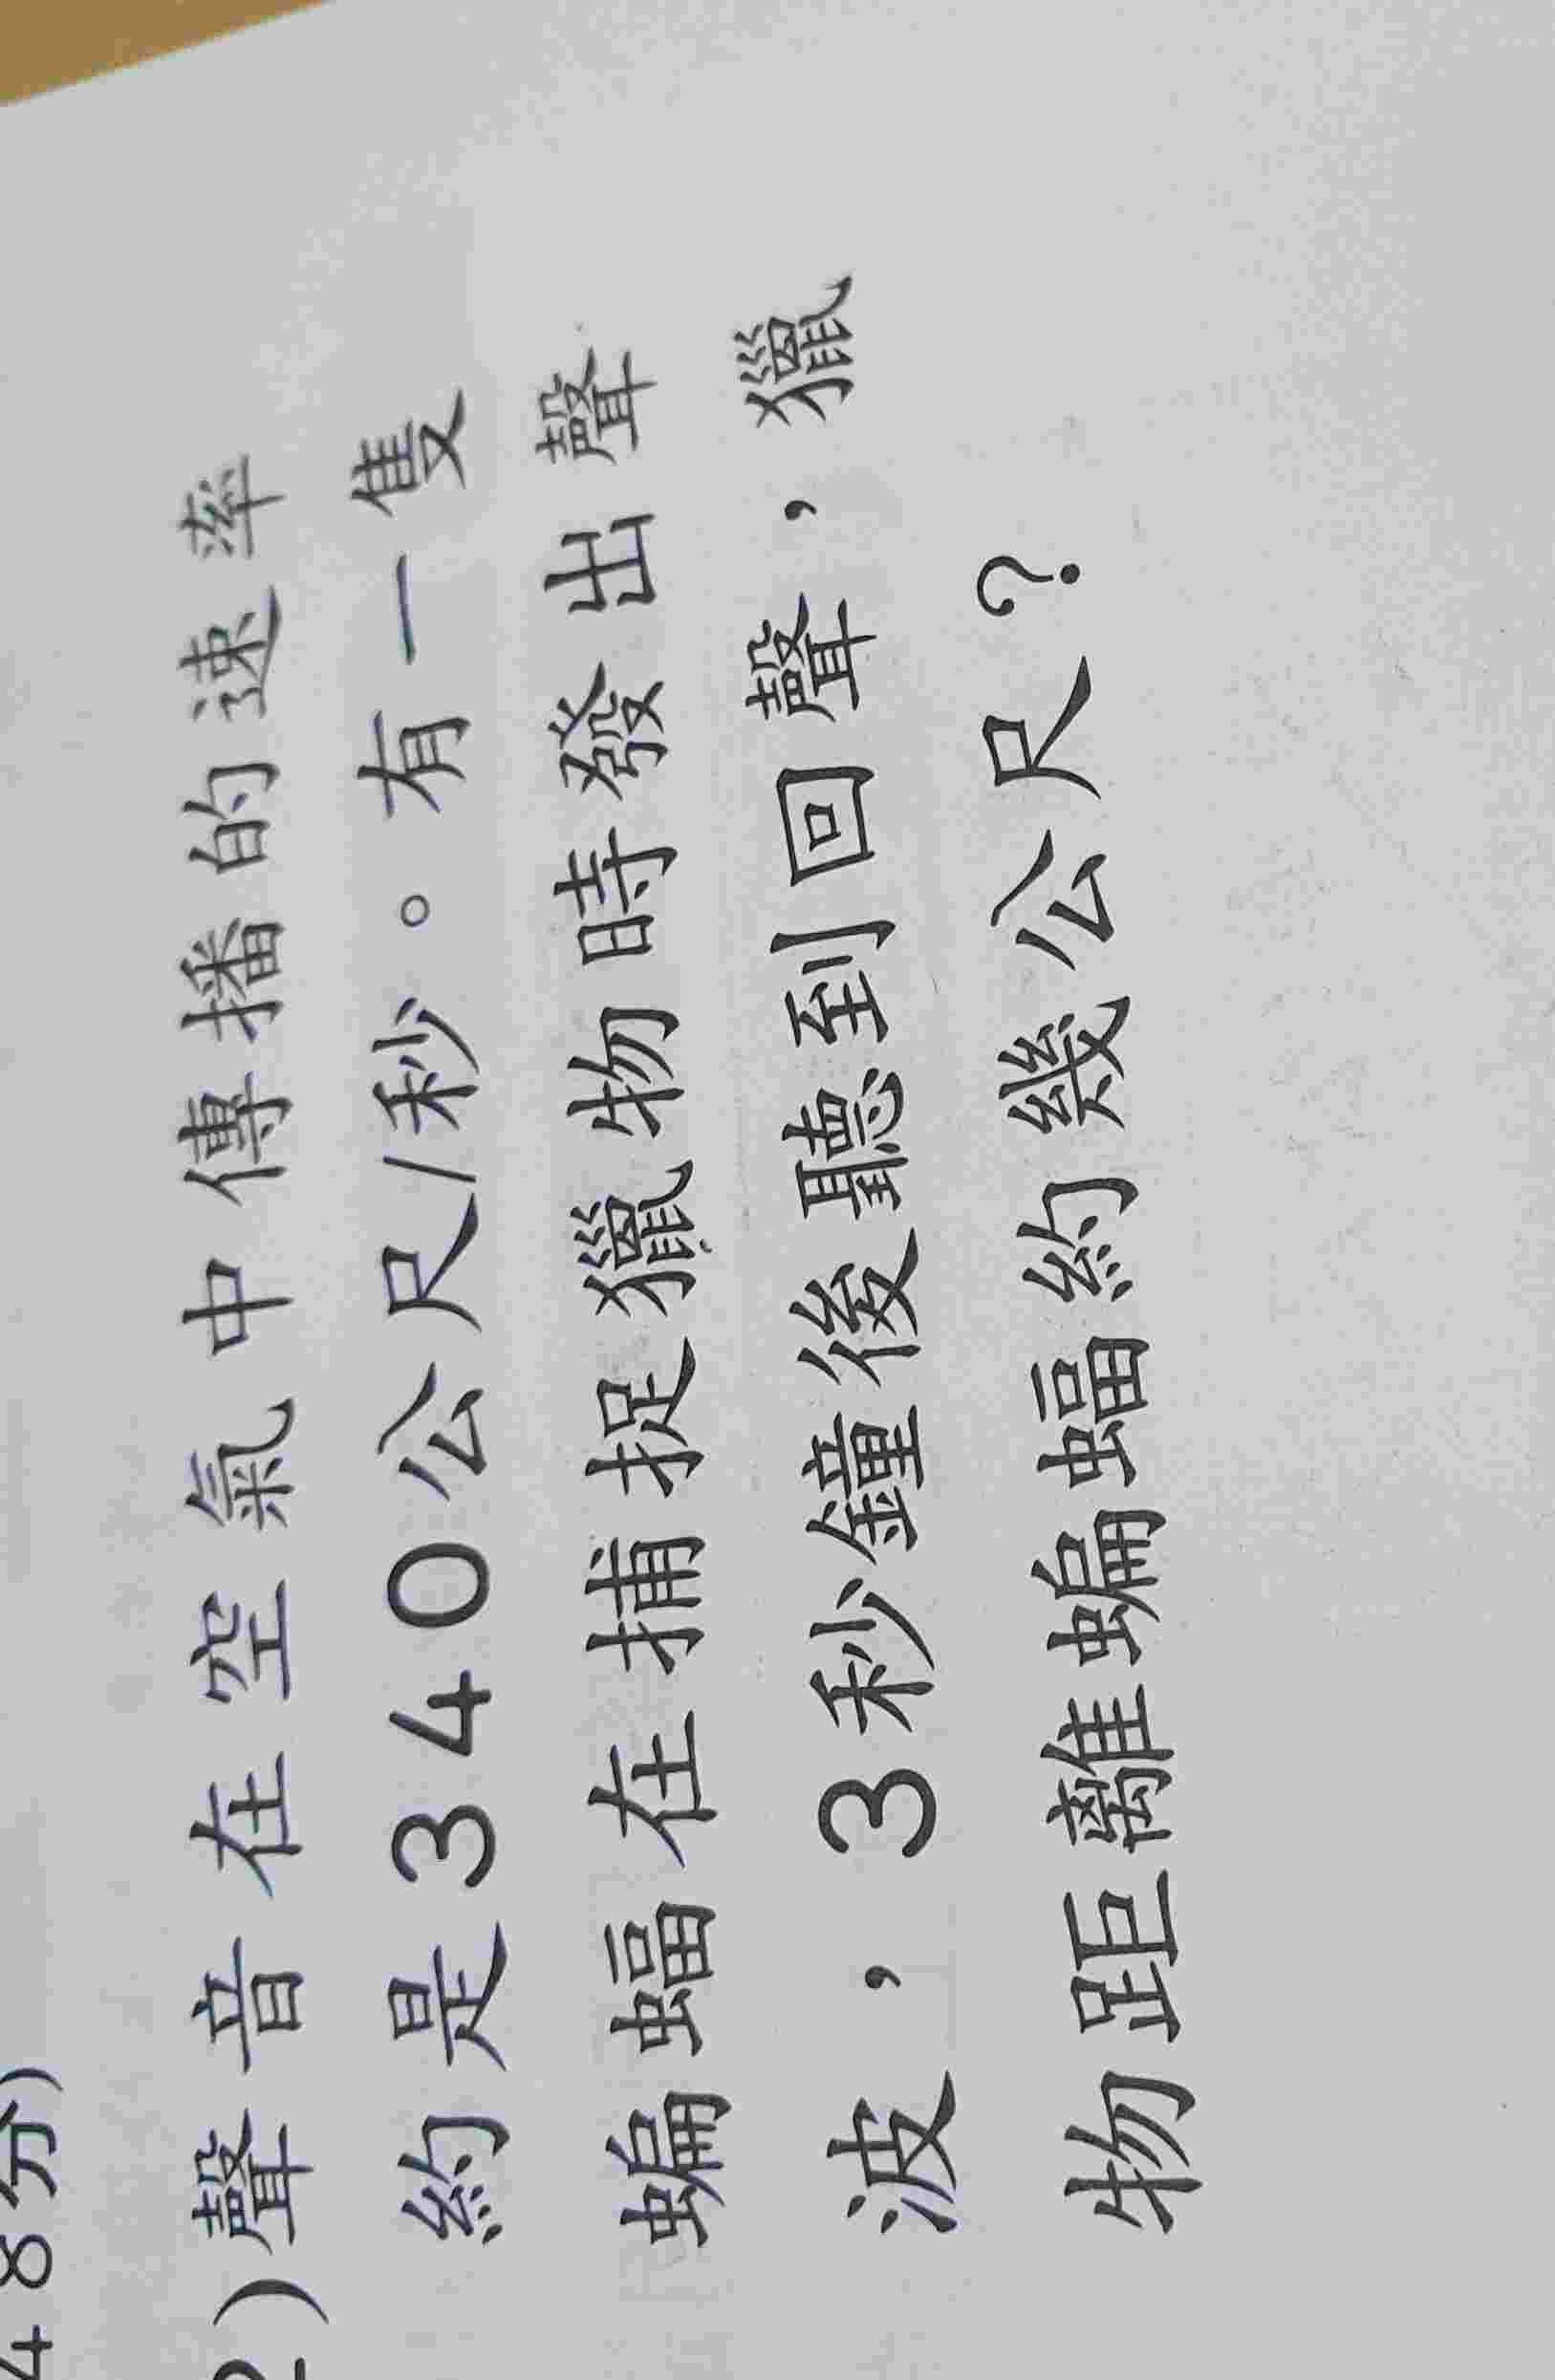 48分)
2)聲音在空氣中傳播的速率
約是340公尺/秒。有一隻
蝙蝠在捕捉獵物時發出聲
波，3秒鐘後聽到回聲，獵
物距離蝙蝠約幾公尺?